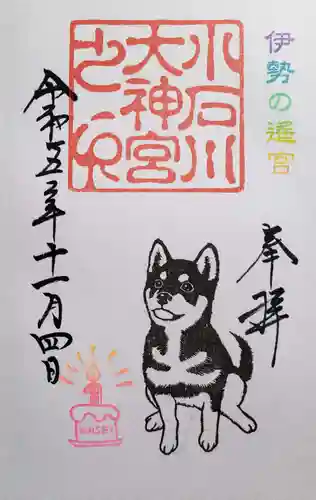 伊勢の遥宮
奉拝
小石川
大神宮
之印
令和五年十一月四日
1